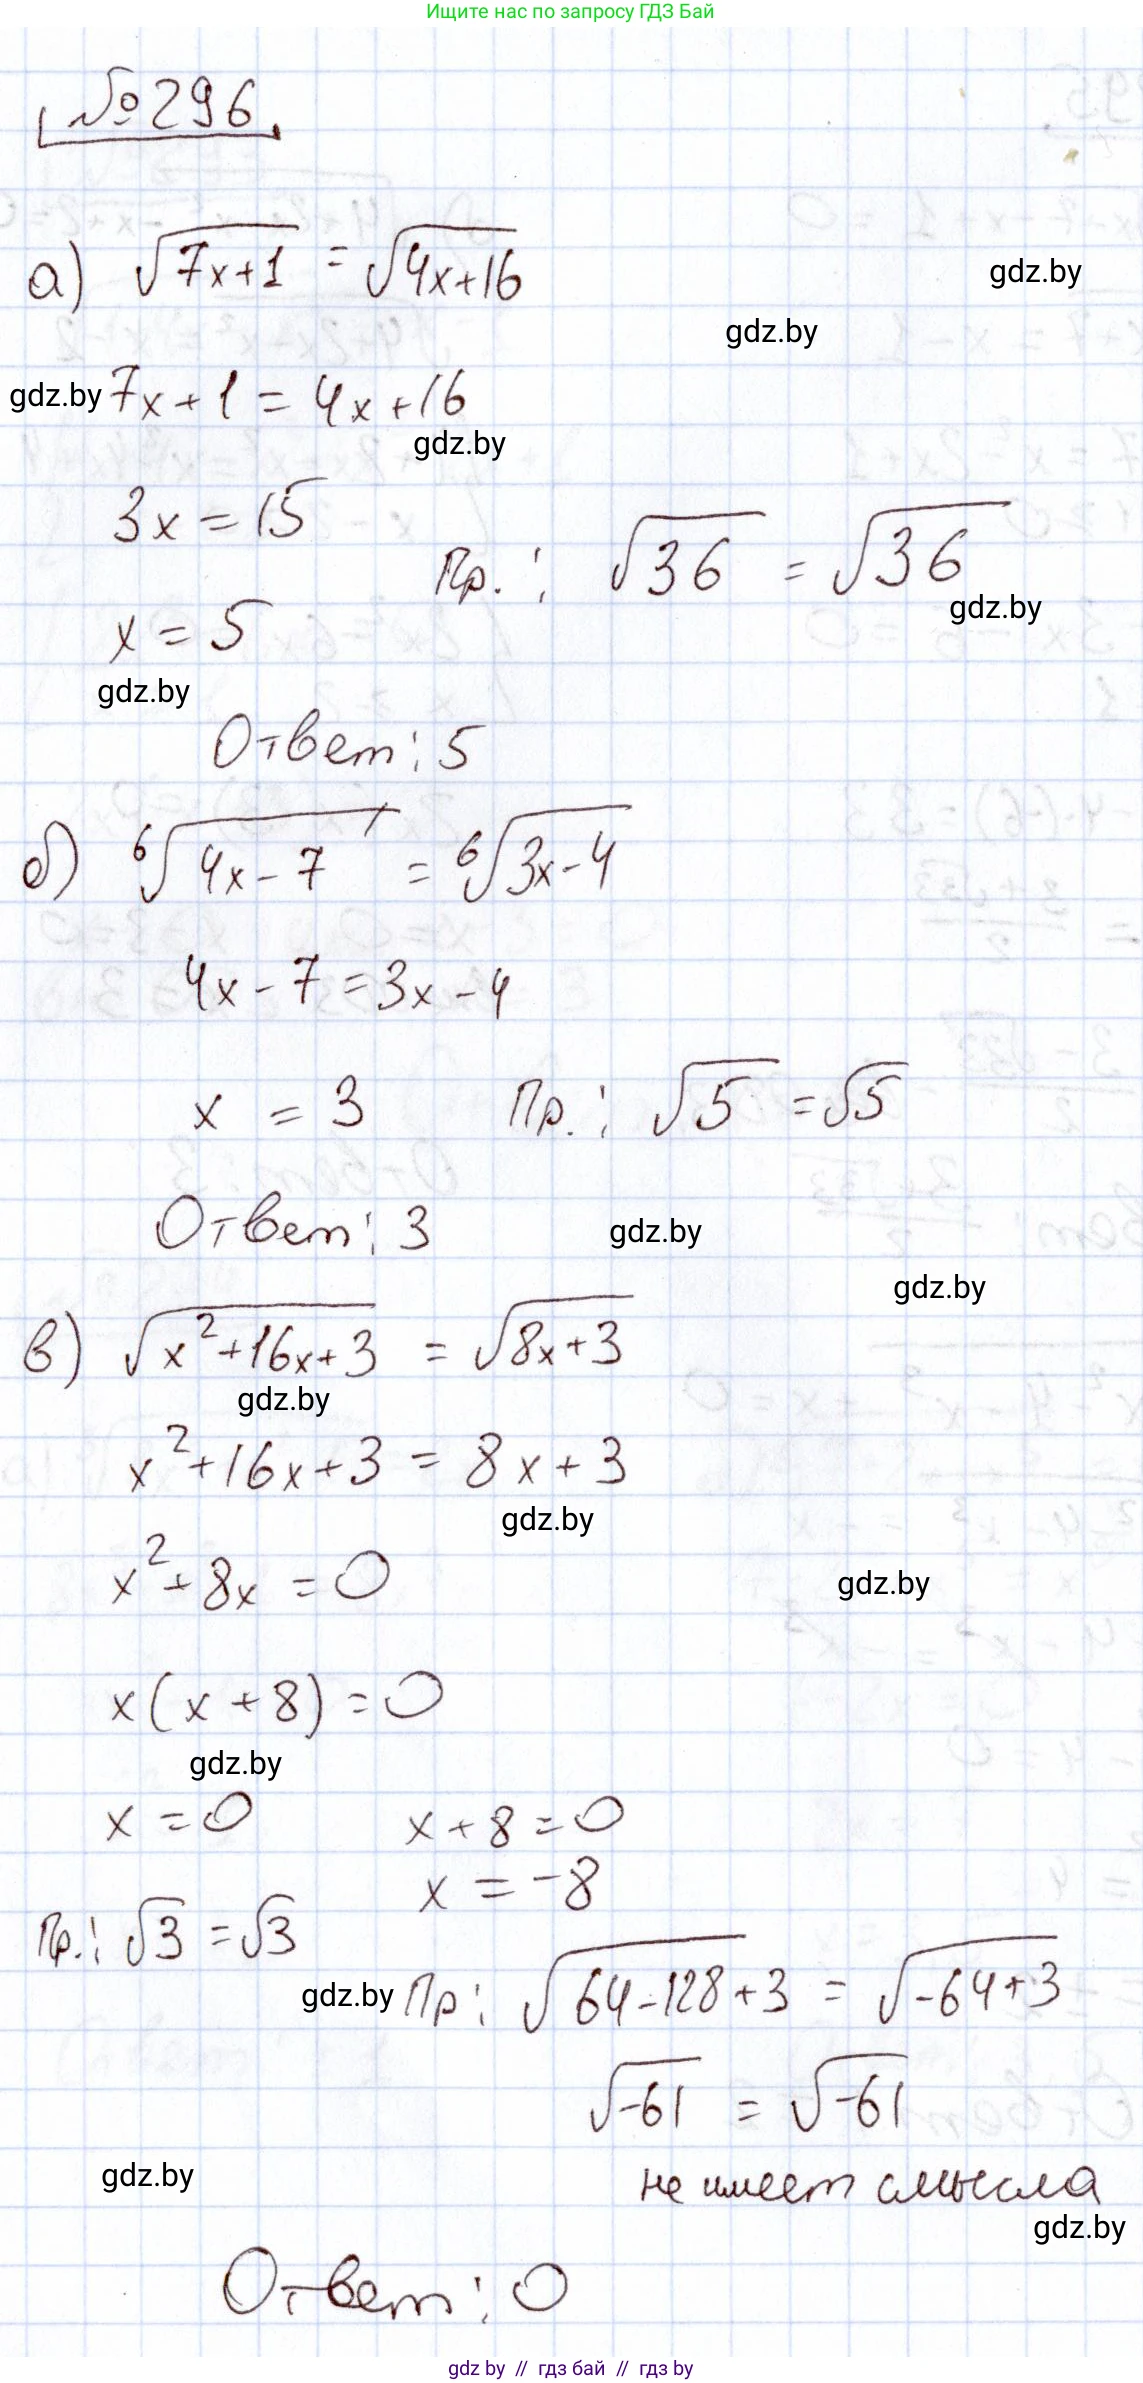 Ищите нас по запросу ГДЗ Бай
№296
а) √(7x+1) = √(4x+16)
gdz.by
gdz.by
gdz.by 7x+1 = 4x+16
gdz.by
3x = 15
Пр.: √36 = √36
gdz.by
x = 5
gdz.by
Ответ: 5
б) ⁶√(4x-7) = ⁶√(3x-4)
4x-7 = 3x-4
x = 3 Пр.: √5 = √5
Ответ: 3 gdz.by
gdz.by
в) √(x²+16x+3) = √(8x+3)
gdz.by
x²+16x+3 = 8x+3
gdz.by
x²+8x = 0
gdz.by
x(x+8) = 0
gdz.by
x = 0 x+8 = 0
x = -8
Пр.: √3 = √3
gdz.by Пр: √(64-128+3) = √(-64+3)
√-61 = √-61
gdz.by не имеет смысла
gdz.by
Ответ: 0
gdz by // гдз бай // гдз by